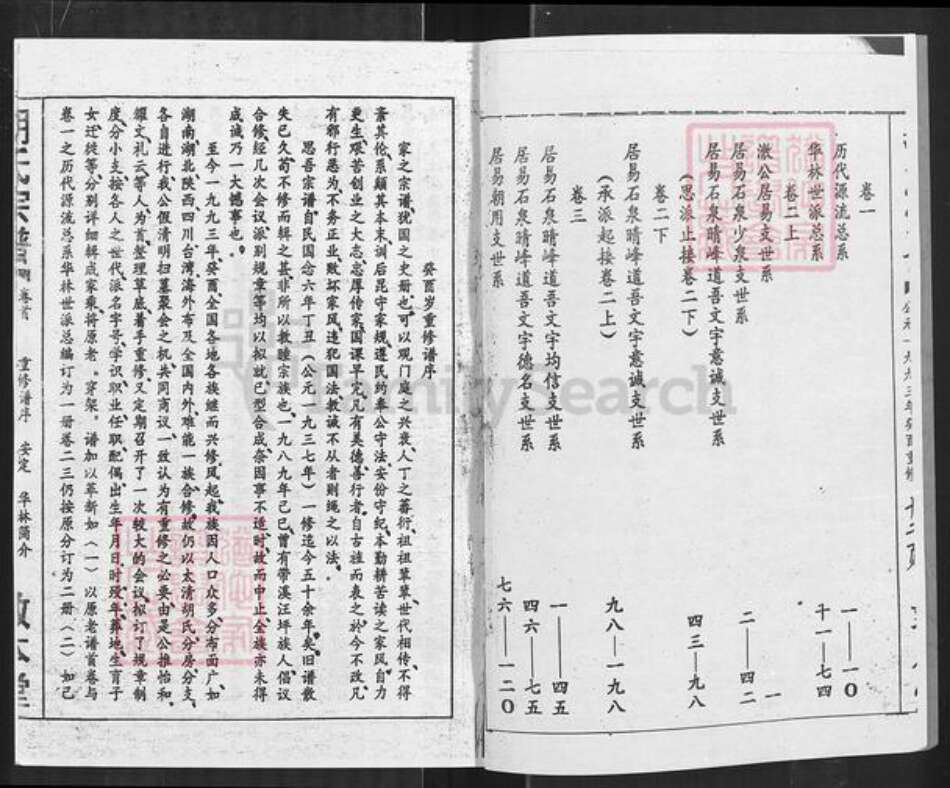 卷一
历代源流总系 一——一0
华林世派总系 十一——七四
卷二上 一
澂公居易支世系
居易石泉少泉支世系 二——四二
居易石泉晴峰道吾文字意诚支世系 四三——九八
（思派止接卷二下）
卷二下
居易石泉晴峰道吾文字意诚支世系 九八——一九八
（承派起接卷二上）
卷三
居易石泉晴峰道吾文字均信支世系 一——四五
居易石泉晴峰道吾文字德名支世系 四六——七五
居易朝用支世系 七六——一二0
公元一九九三年癸酉重修
癸酉岁重修谱序
家之宗谱犹国之史册也、可以观门庭之兴衰、人丁之蕃衍、祖祖辈辈、世代相传、不得
紊其伦、系颠其本末、训后昆守家规、遵民约奉公守法、安份守纪、本勤耕苦读之家风、自力
更生、艰苦创业之大志、忠厚传家、国课早完、凡有美德善行者、自古旌而表之、於今不改、凡
有邪行恶为、不务正业、败坏家风、违犯国法、教诫不从者、则绳之以法。
思吾宗谱、自民国念六年丁丑（公元一九三七年）一修迄今、五十余年矣、旧谱散
失已久、苟不修而辑之、甚非所以敦睦宗族也、一九八九年己巳、曾有带溪汪坪族人、倡议
合修、经几次会议、派别规章等、均以拟就、已型合成、奈因事不适、时故而中止、金族亦未得
成诚乃一大憾事也。
至今一九九三年、癸酉、全国各地、各族继而兴修风起、我族因人口众多、分布面广、如
湖南、湖北、陕西、四川、台湾、海外布及全国内外、难能一族合修、故仍以太清胡氏分房分支、
各自进行、我公假清明扫墓聚会之机、共同商议、一致认为有重修之必要、由是公推怡和、
耀文、礼云等人为首、整理草底、着手重修、又定期召开了一次较大的会议、拟订了规章制
度、分小支按各人之世代、派名字号、学识职业任职、配偶出生年月日时、殁年、葬地、生育子
女、迁徙等、分别详细辑成家乘、将原老。穿架。谱加以革新如（一）以原老谱首卷与
卷一之历代源流总系华林世派总编订为一册、卷二三仍按原分订为二册（二）如己
卷首
重修谱序
安定
华林简介